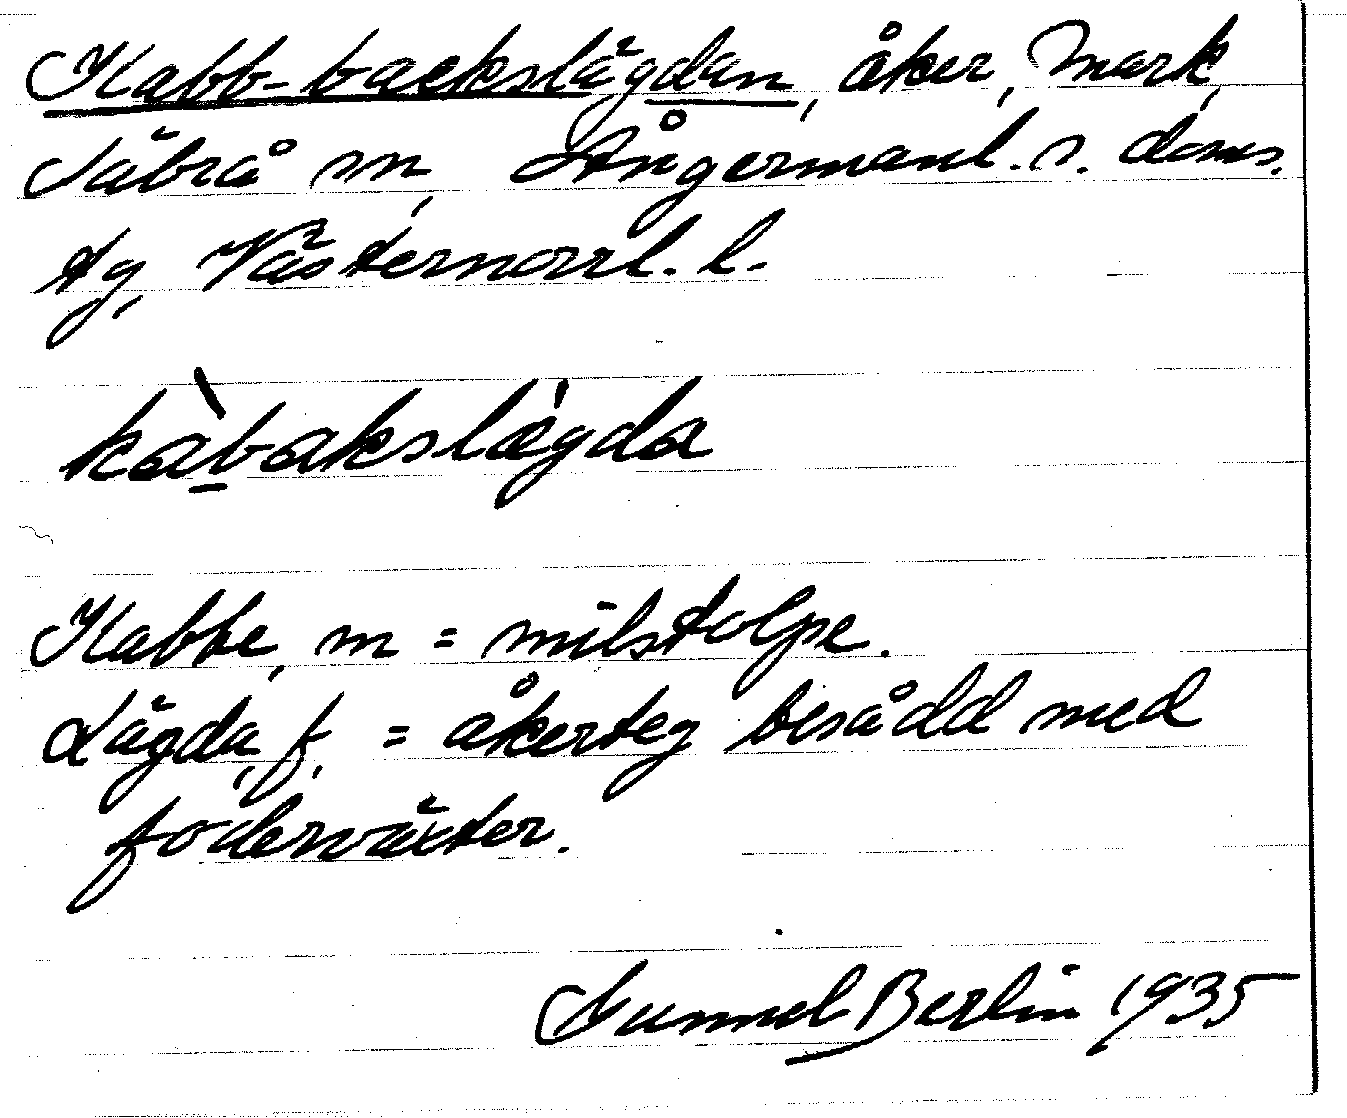 Kabb-backslägdan, åker, Mark,
Säbrå sn, Ångermanl. s. doms.
tg, Västernorrl. l.
kàb̲akslǽgda
Kabbe, m = milstolpe.
Lägda, f, = åkerteg besådd med
foderväxter.
Gunnel Berlin 1935